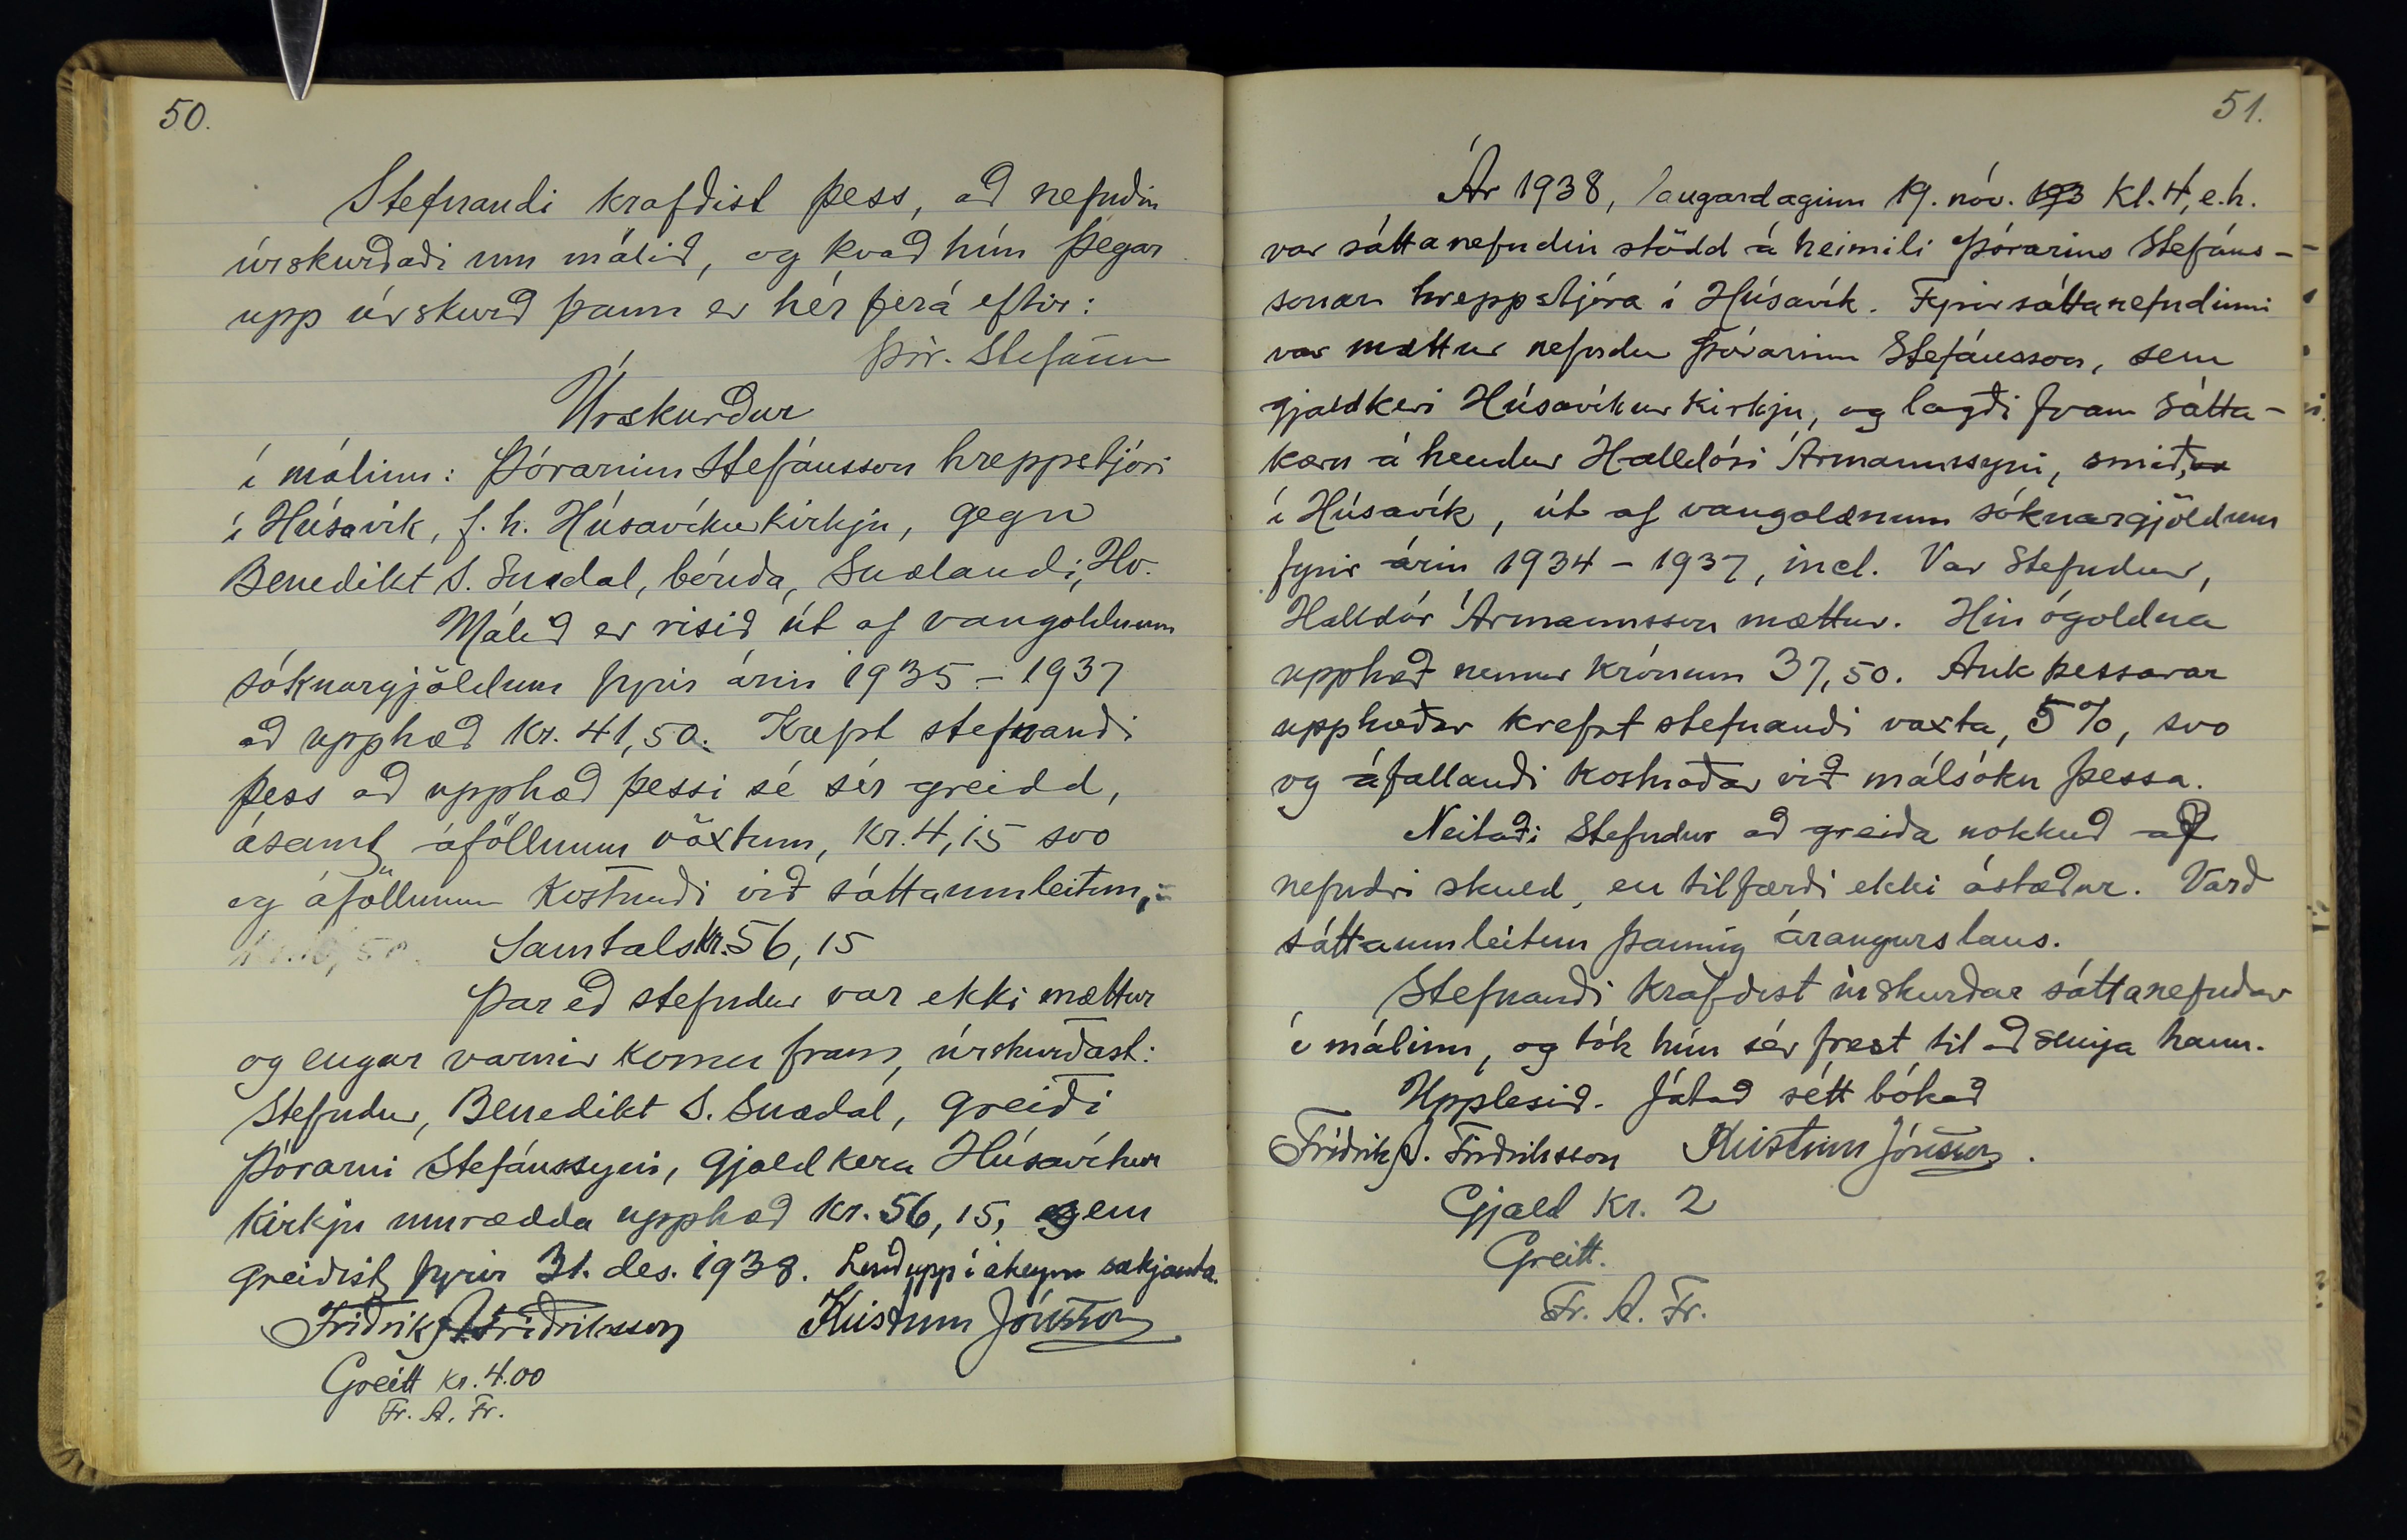 50.
Stefnandi krafðist þess, að nefndin
úrskurðaði um málið, og kvað hún þegar
upp úrskurð þann er hér fer á eftir:
Þór. Stefánss
Úrskurður
í málinu: Þórarinn Stefánsson hreppstjóri
í Húsavík, f.h. Húsavíkurkirkju, gegn
Benedikt S. Snædal, bónda, Snælandi, Hv.
Málið er risið út af vangoldnum
sóknargjöldum fyrir árin 1935 - 1937
að upphæð kr. 41,50. Krefst stefnandi
þess að upphæð þessi sé sér greidd,
ásamt áföllnum vöxtum, kr. 4,15 svo
og áföllnum kostnaði við sáttaumleitun,
Samtals kr. 56,15
Þar eð stefndur var ekki mættur
og engar varnir komu fram, úrskurðast:
Stefndur, Benedikt S. Snædal, greiði
Þórarni Stefánssyni, gjaldkera Húsavíkur
kirkju umrædda upphæð kr. 56,15, sem
greiðist fyrir 31. des. 1938. upp í áheyrn sækjanda.
Friðrik A. Friðriksson Kristinn Jónsson
Greitt kr. 4.00
Fr. A. Fr.
51.
Ár 1938, laugardaginn 19. nóv. 193 kl. 4, e.h.
var sáttanefndin stödd á heimili Þórarins Stefáns-
sonar hreppstjóra í Húsavík. Fyrir sáttanefndinni
var mættur nefndur Þórarinn Stefánsson, sem
gjaldkeri Húsavíkur kirkju, og lagði fram sátta-
kæru á hendur Halldóri Ármannssyni, smið,
í Húsavík, út af vangoldnum sóknargjöldum
fyrir árin 1934 - 1937, incl. Var stefndur,
Halldór Ármannsson mættur. Hin ógoldna
upphæð nemur krónum 37,50. Auk þessarar
upphæðar krefst stefnandi vaxta, 5%, svo
og áfallandi kostnaðar við málsókn þessa.
Neitaði stefndur að greiða nokkuð af
nefndri skuld, en tilfærði ekki ástæður. Varð
sáttaumleitun þannig árangurslaus.
Stefnandi krafðist úrskurðar sáttanefndar
í málinu, og tók hún sér frest til að semja hann.
Upplesið. Játað rétt bókað
Friðrik A. Friðriksson Kristinn Jónsson.
Gjald kr. 2
Greitt.
Fr. A. Fr.